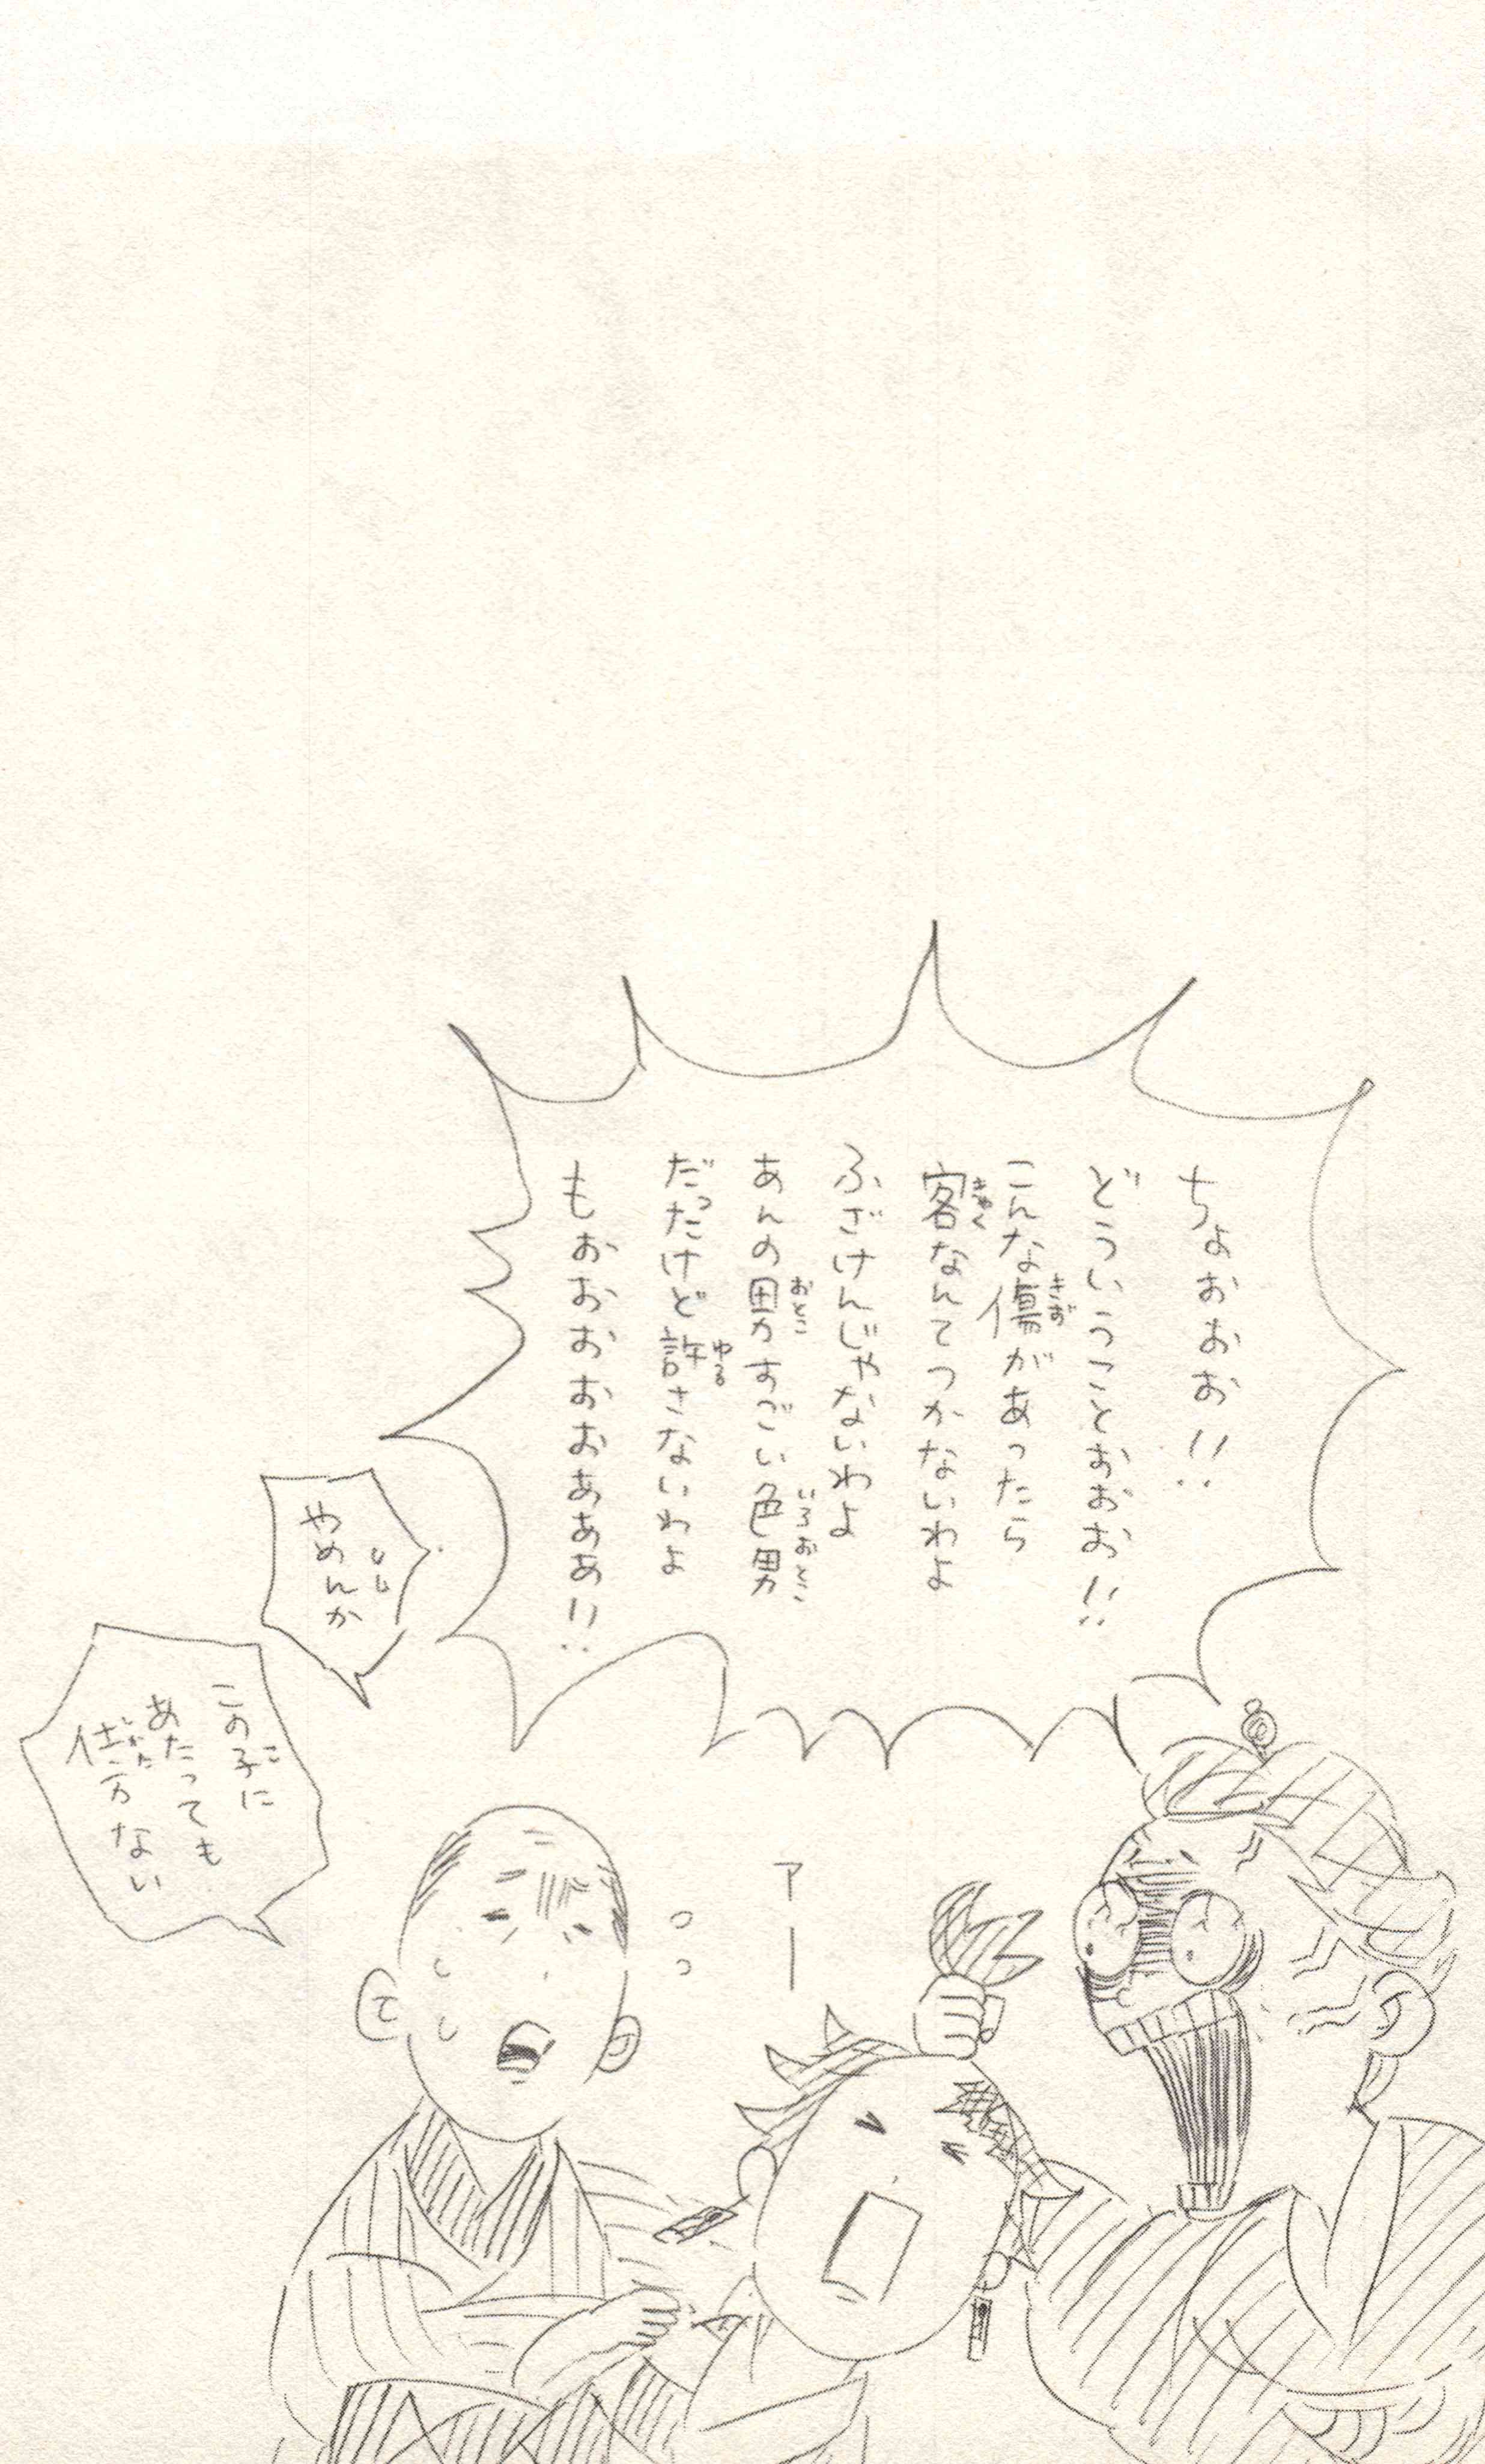 ちょおおお!!
どういうことおおお!!
こんな傷があったら
客なんてつかないわよ
ふざけんじゃないわよ
あんの男すごい色男
だったけど許さないわよ
もおおおおおあああ!!
やめんか
この子に
あたっても
仕方ない
アー